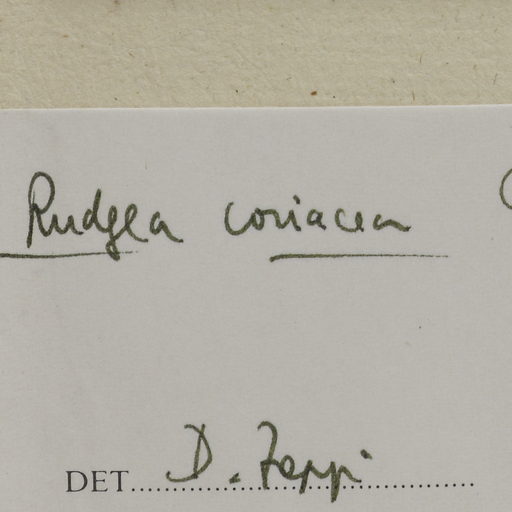 Rudgea coriacea (
DET. D. Zappi